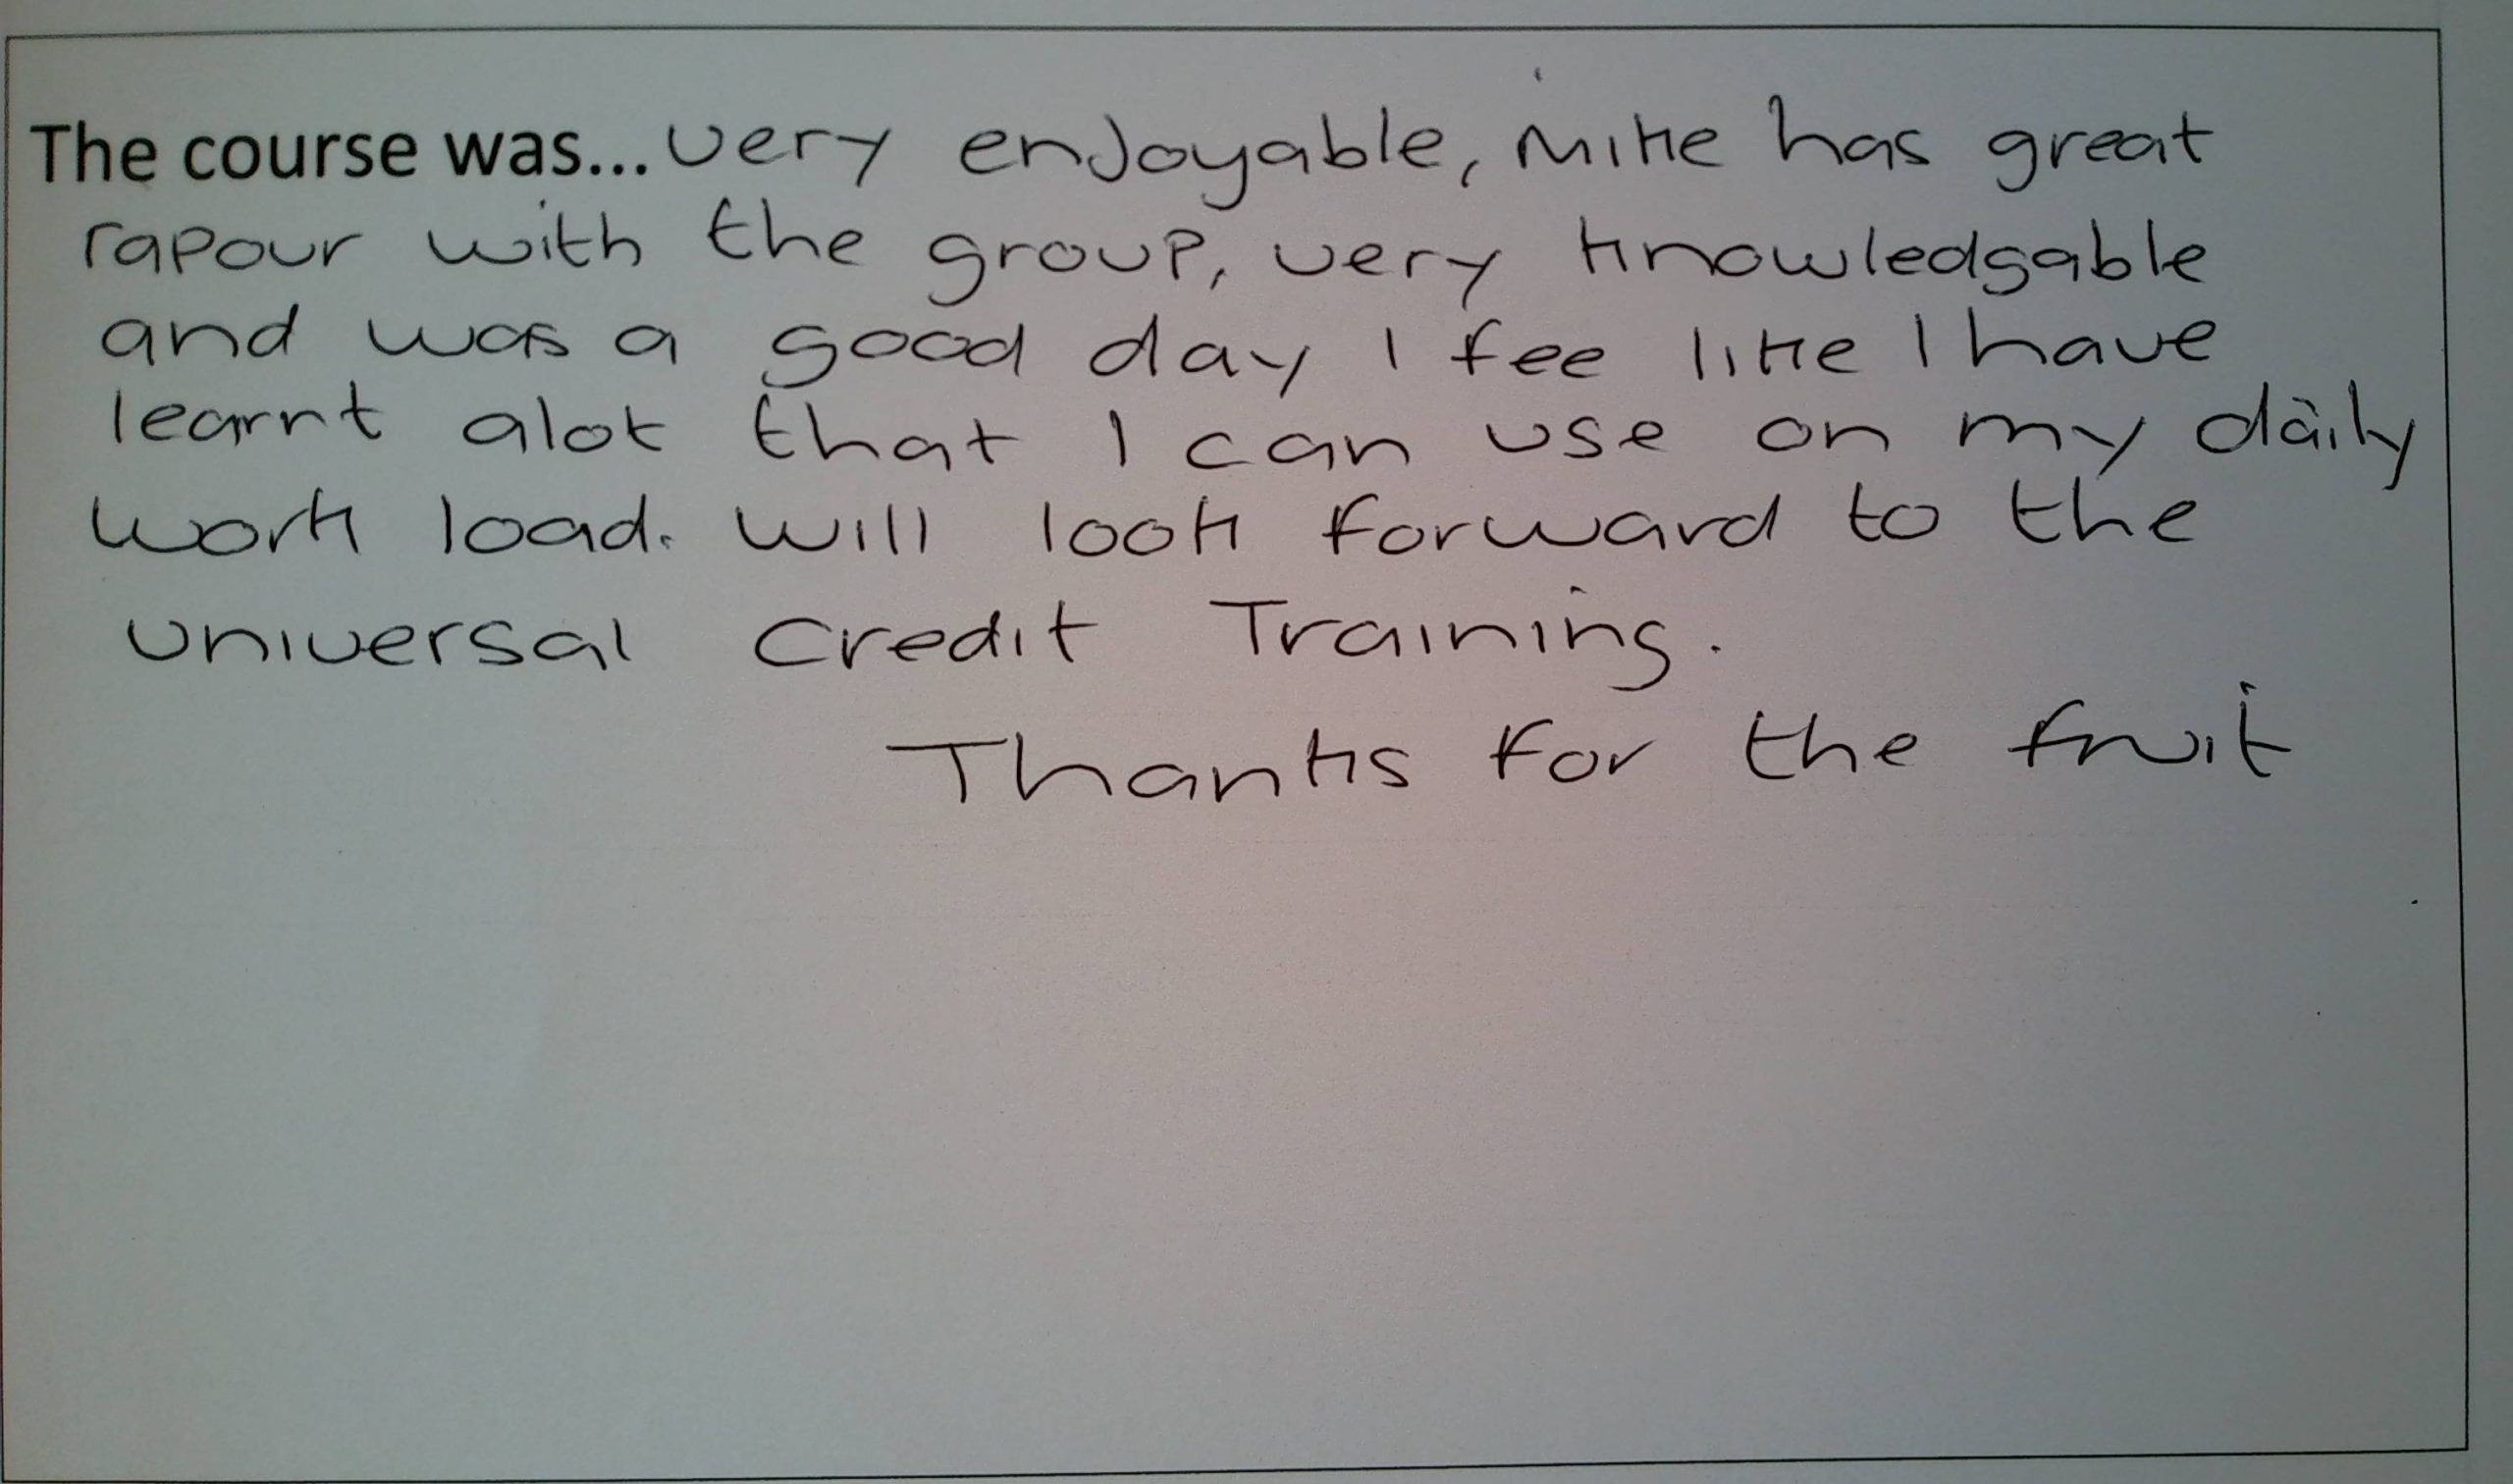 The course was... very enjoyable, Mike has great
rapour with the group, very knowledgable
and was a good day I fee like I have
learnt alot that I can use on my daily
work load. Will look forward to the
universal Credit Training.
Thanks for the fruit